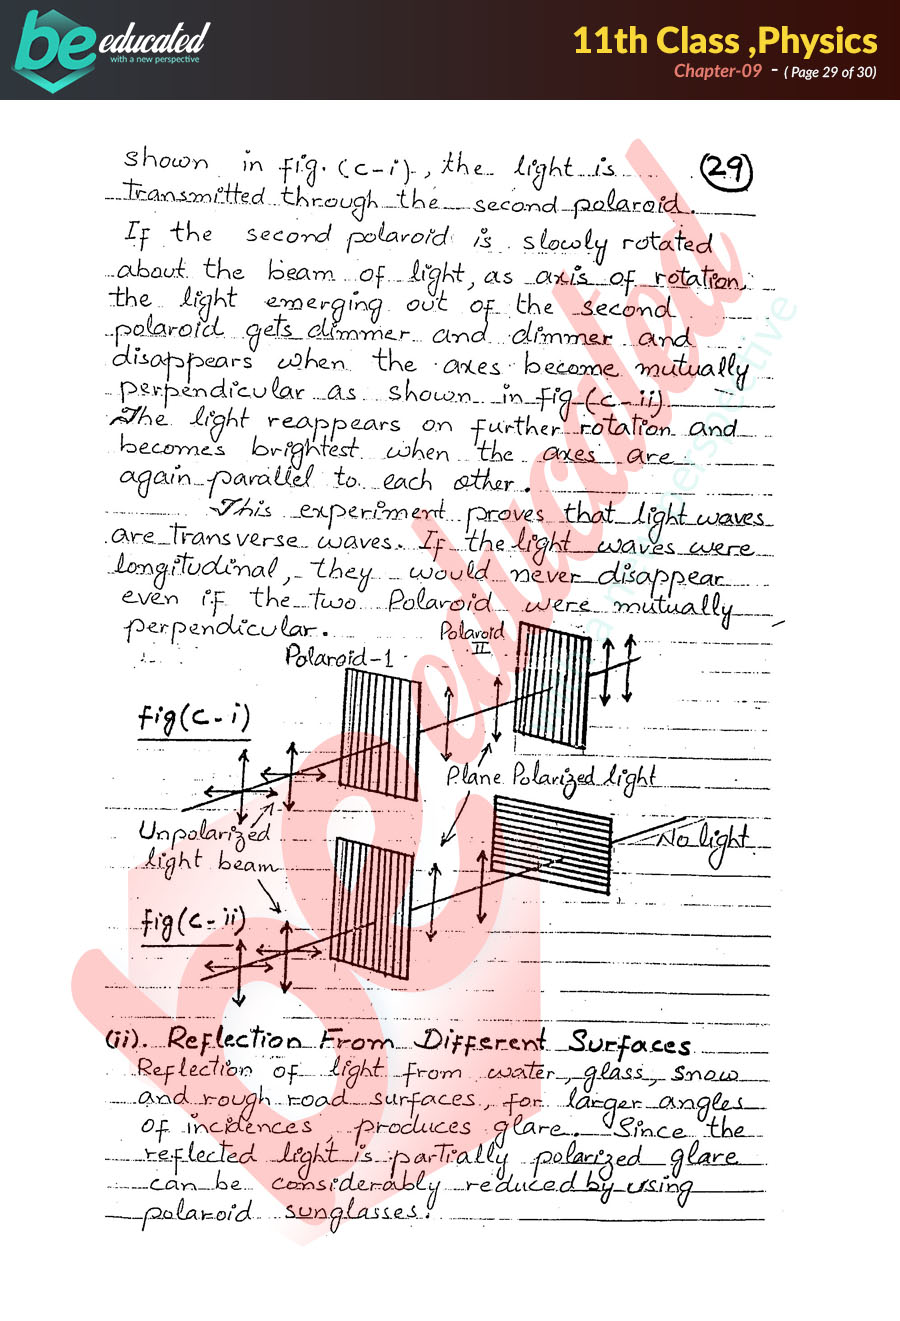 be educated
with a new perspective
11th Class ,Physics
Chapter-09 - ( Page 29 of 30)
29
shown in fig. (c-i), the light is
transmitted through the second polaroid.
If the second polaroid is slowly rotated
about the beam of light, as axis of rotation,
the light emerging out of the second
polaroid gets dimmer and dimmer and
disappears when the axes become mutually
perpendicular as shown in fig (c-ii)
The light reappears on further rotation and
becomes brightest when the axes are
again parallel to each other.
This experiment proves that light waves
are transverse waves. If the light waves were
longitudinal, they would never disappear
even if the two Polaroid were mutually
perpendicular.
Polaroid
II
Polaroid-1
fig(c-i)
Plane Polarized light
Unpolarized
light beam
No light
fig(c-ii)
(ii). Reflection From Different Surfaces
Reflection of light from water, glass, snow
and rough road surfaces, for larger angles
of incidences, produces glare. Since the
reflected light is partially polarized glare
can be considerably reduced by using
polaroid sunglasses.
be educated
with a new perspective